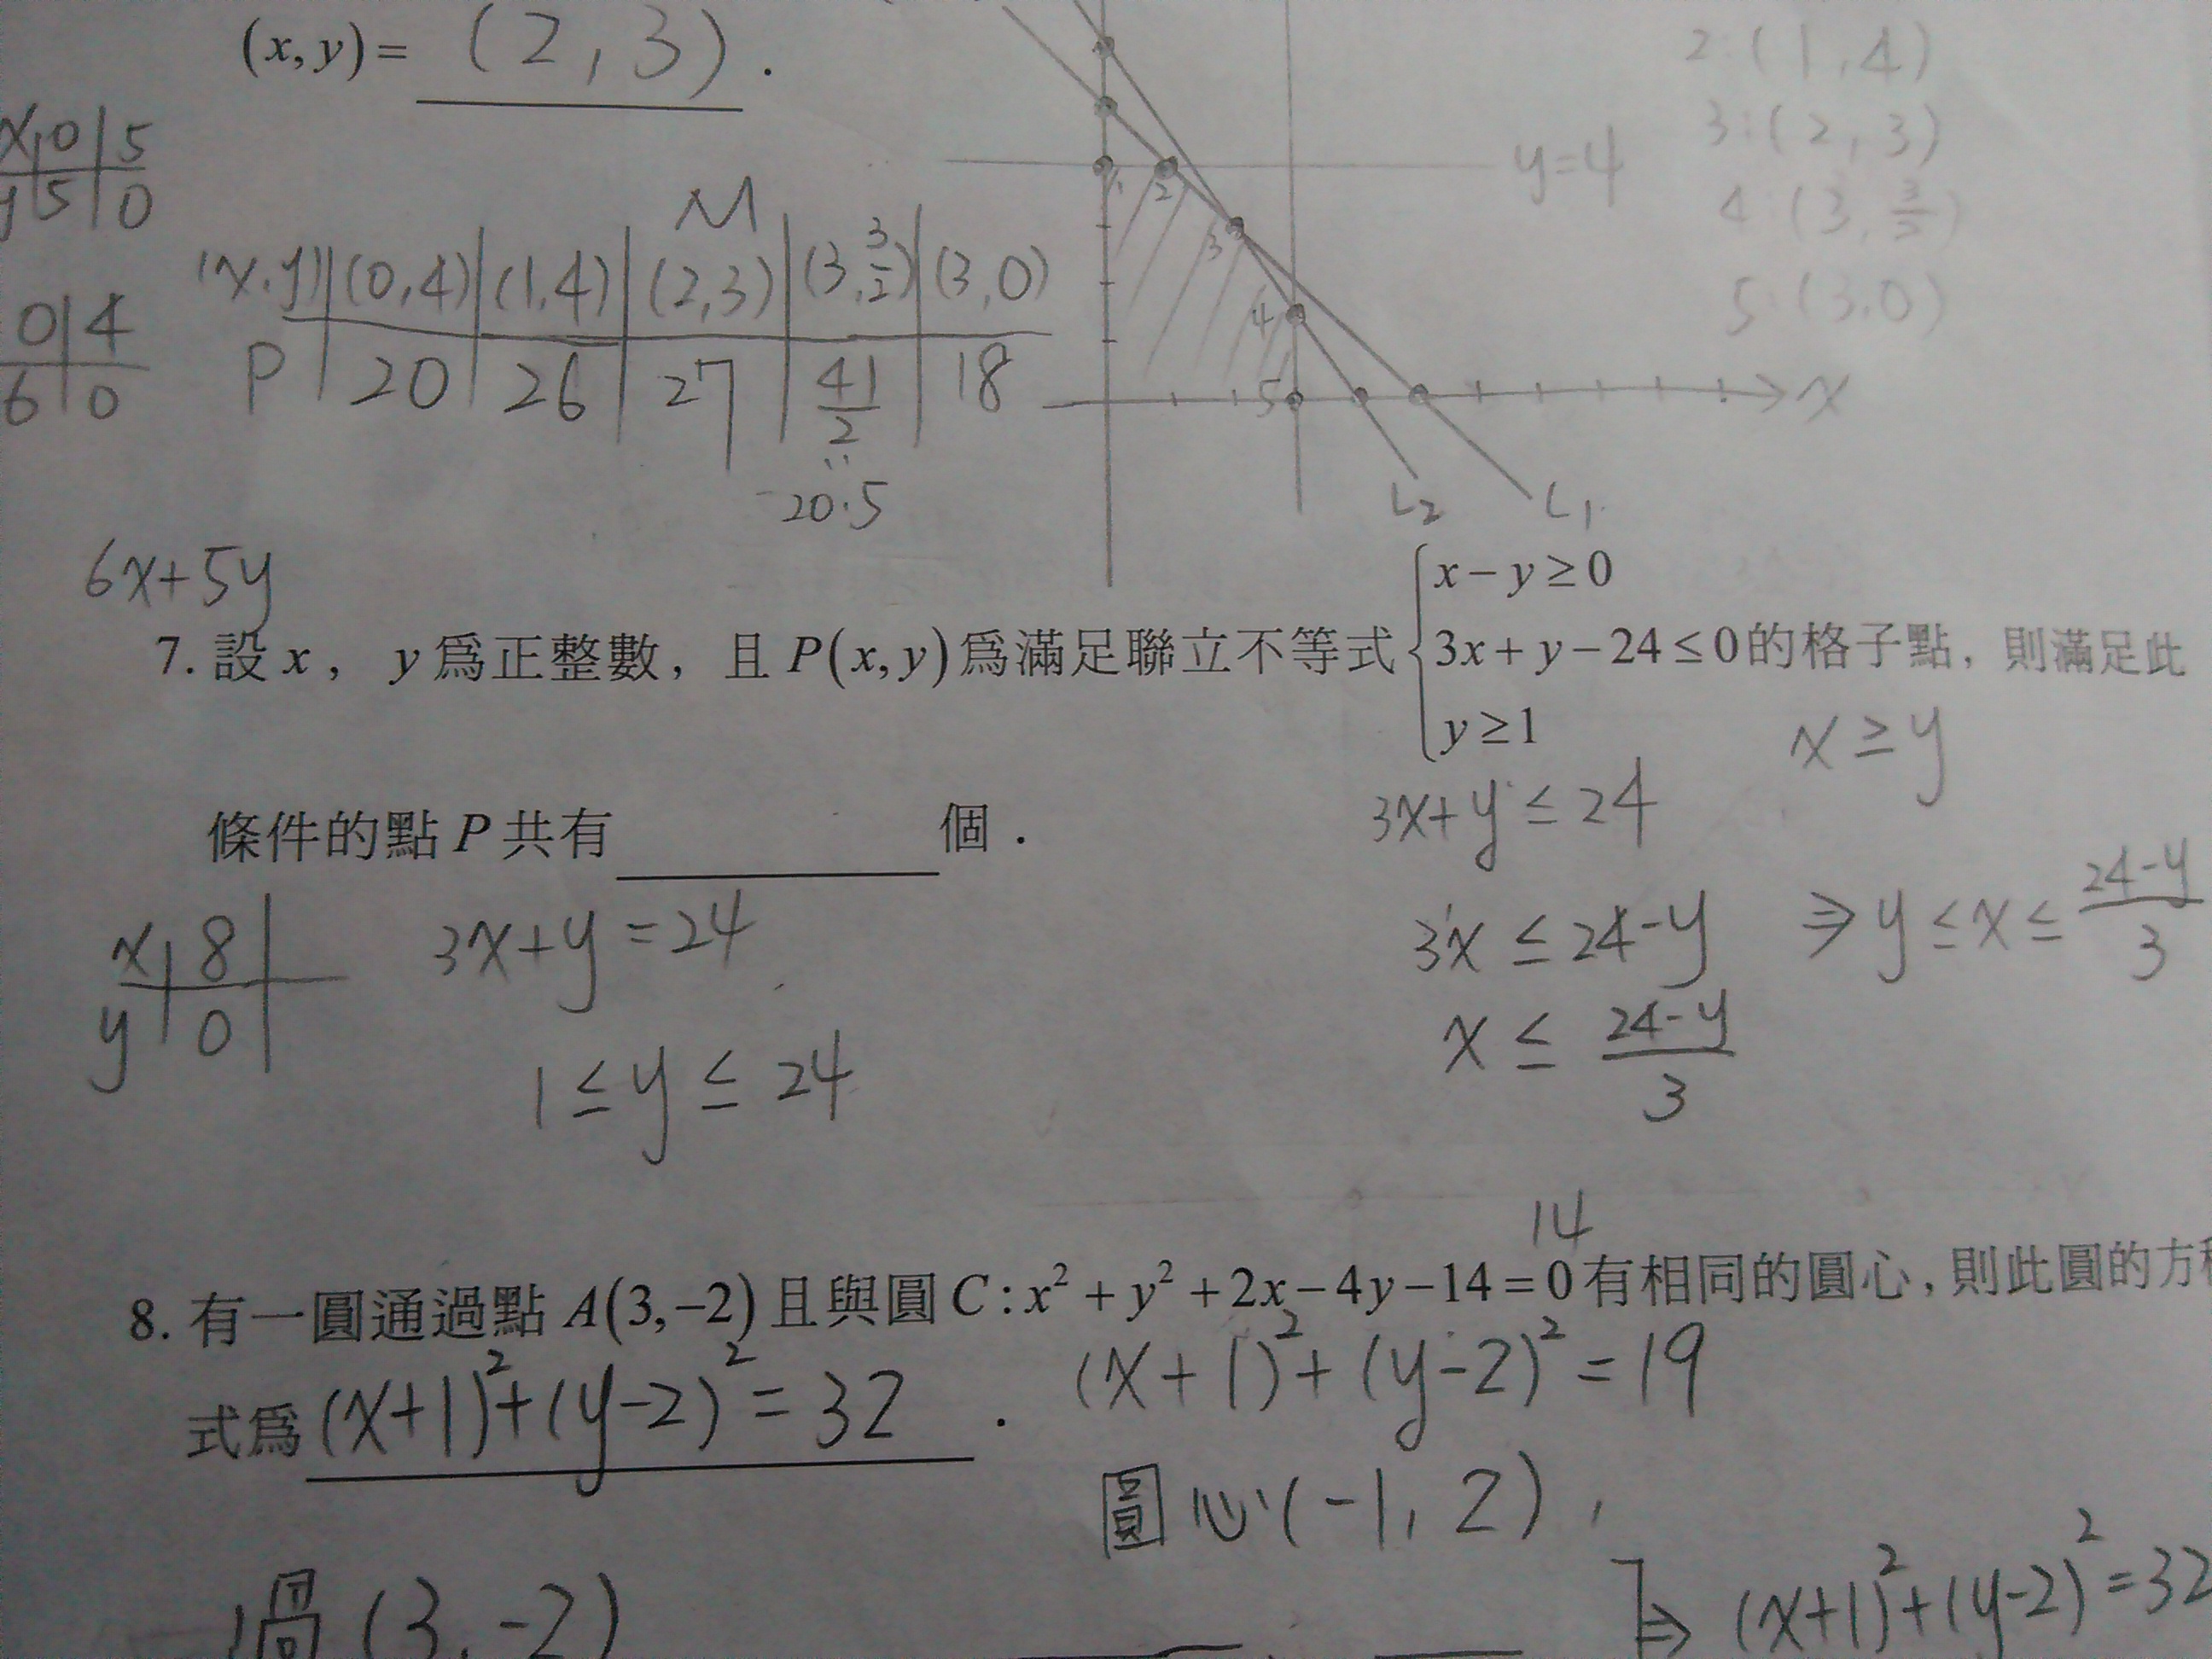 (x, y) = (2, 3) .
x 0 5
y 5 0
0 4
6 0
M
(x,y) (0,4) (1,4) (2,3) (3,3/2) (3,0)
P 20 26 27 41/2 18
20.5
2:(1,4)
3:(2,3)
4:(3,3/2)
5:(3,0)
y=4
1 2 3 4 5
x
L2 L1
6x+5y
7. 設 x ， y 爲正整數，且 P(x,y) 爲滿足聯立不等式 { x−y≥0 3x+y−24≤0 y≥1 的格子點，則滿足此
條件的點 P 共有 個．
x≥y
3x+y≤24
3x≤24-y ⇒ y≤x≤(24-y)/3
x≤(24-y)/3
x 8
y 0
3x+y=24
1≤y≤24
14
8. 有一圓通過點 A(3,−2) 且與圓 C : x²+y²+2x−4y−14=0 有相同的圓心，則此圓的方
式爲 (x+1)²+(y-2)²=32 ．
(x+1)²+(y-2)²=19
圓心(-1,2),
過(3,-2)
⇒ (x+1)²+(y-2)²=32